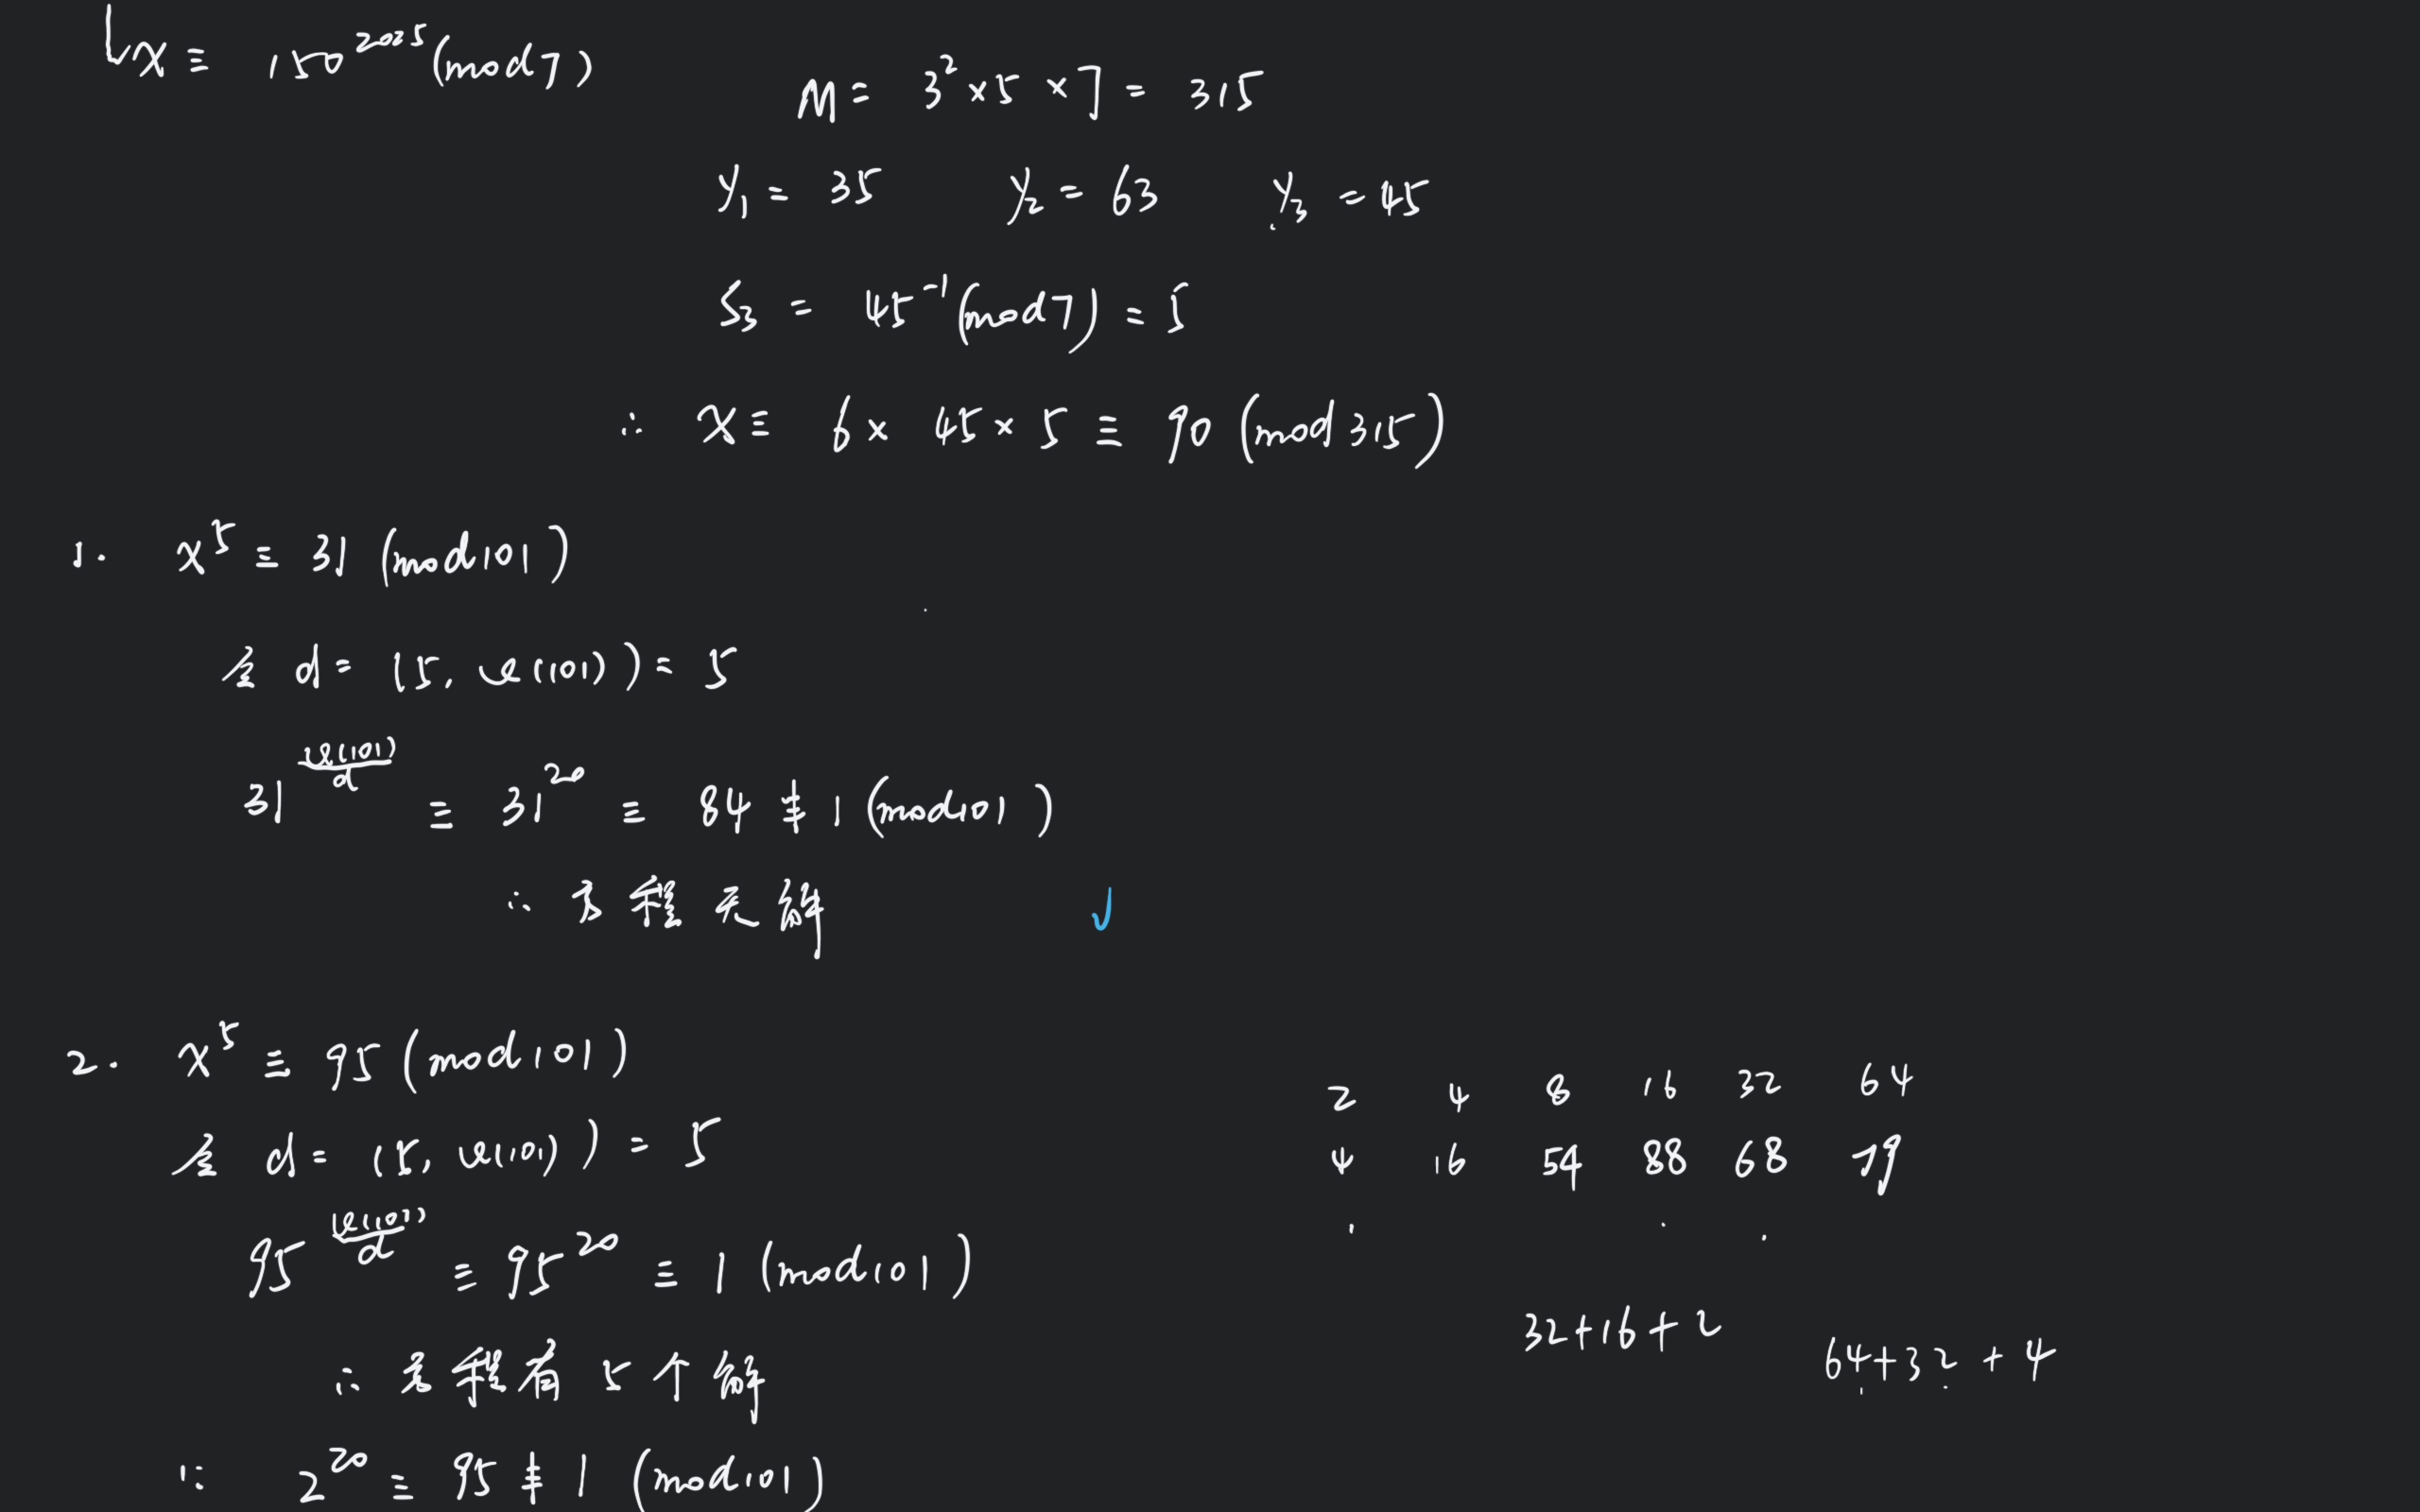 x ≡ 150^2025 (mod 7)
M = 3^2 × 5 × 7 = 315
y_1 = 35 y_2 = 63 y_3 = 45
S_3 = 45^-1 (mod 7) = 5
∴ x ≡ 6 × 45 × 5 ≡ 90 (mod 315)
1. x^5 ≡ 31 (mod 101)
令 d = (5, φ(101)) = 5
31^(φ(101)/d) ≡ 31^20 ≡ 84 ≢ 1 (mod 101)
∴ 方程无解 ✓
2. x^5 ≡ 95 (mod 101)
令 d = (5, φ(101)) = 5
95^(φ(101)/d) ≡ 95^20 ≡ 1 (mod 101)
∴ 方程有 5 个解
∵ 2^20 ≡ 95 ≢ 1 (mod 101)
2 4 8 16 32 64
4 16 54 88 68 79
32+16+2
64+32+4